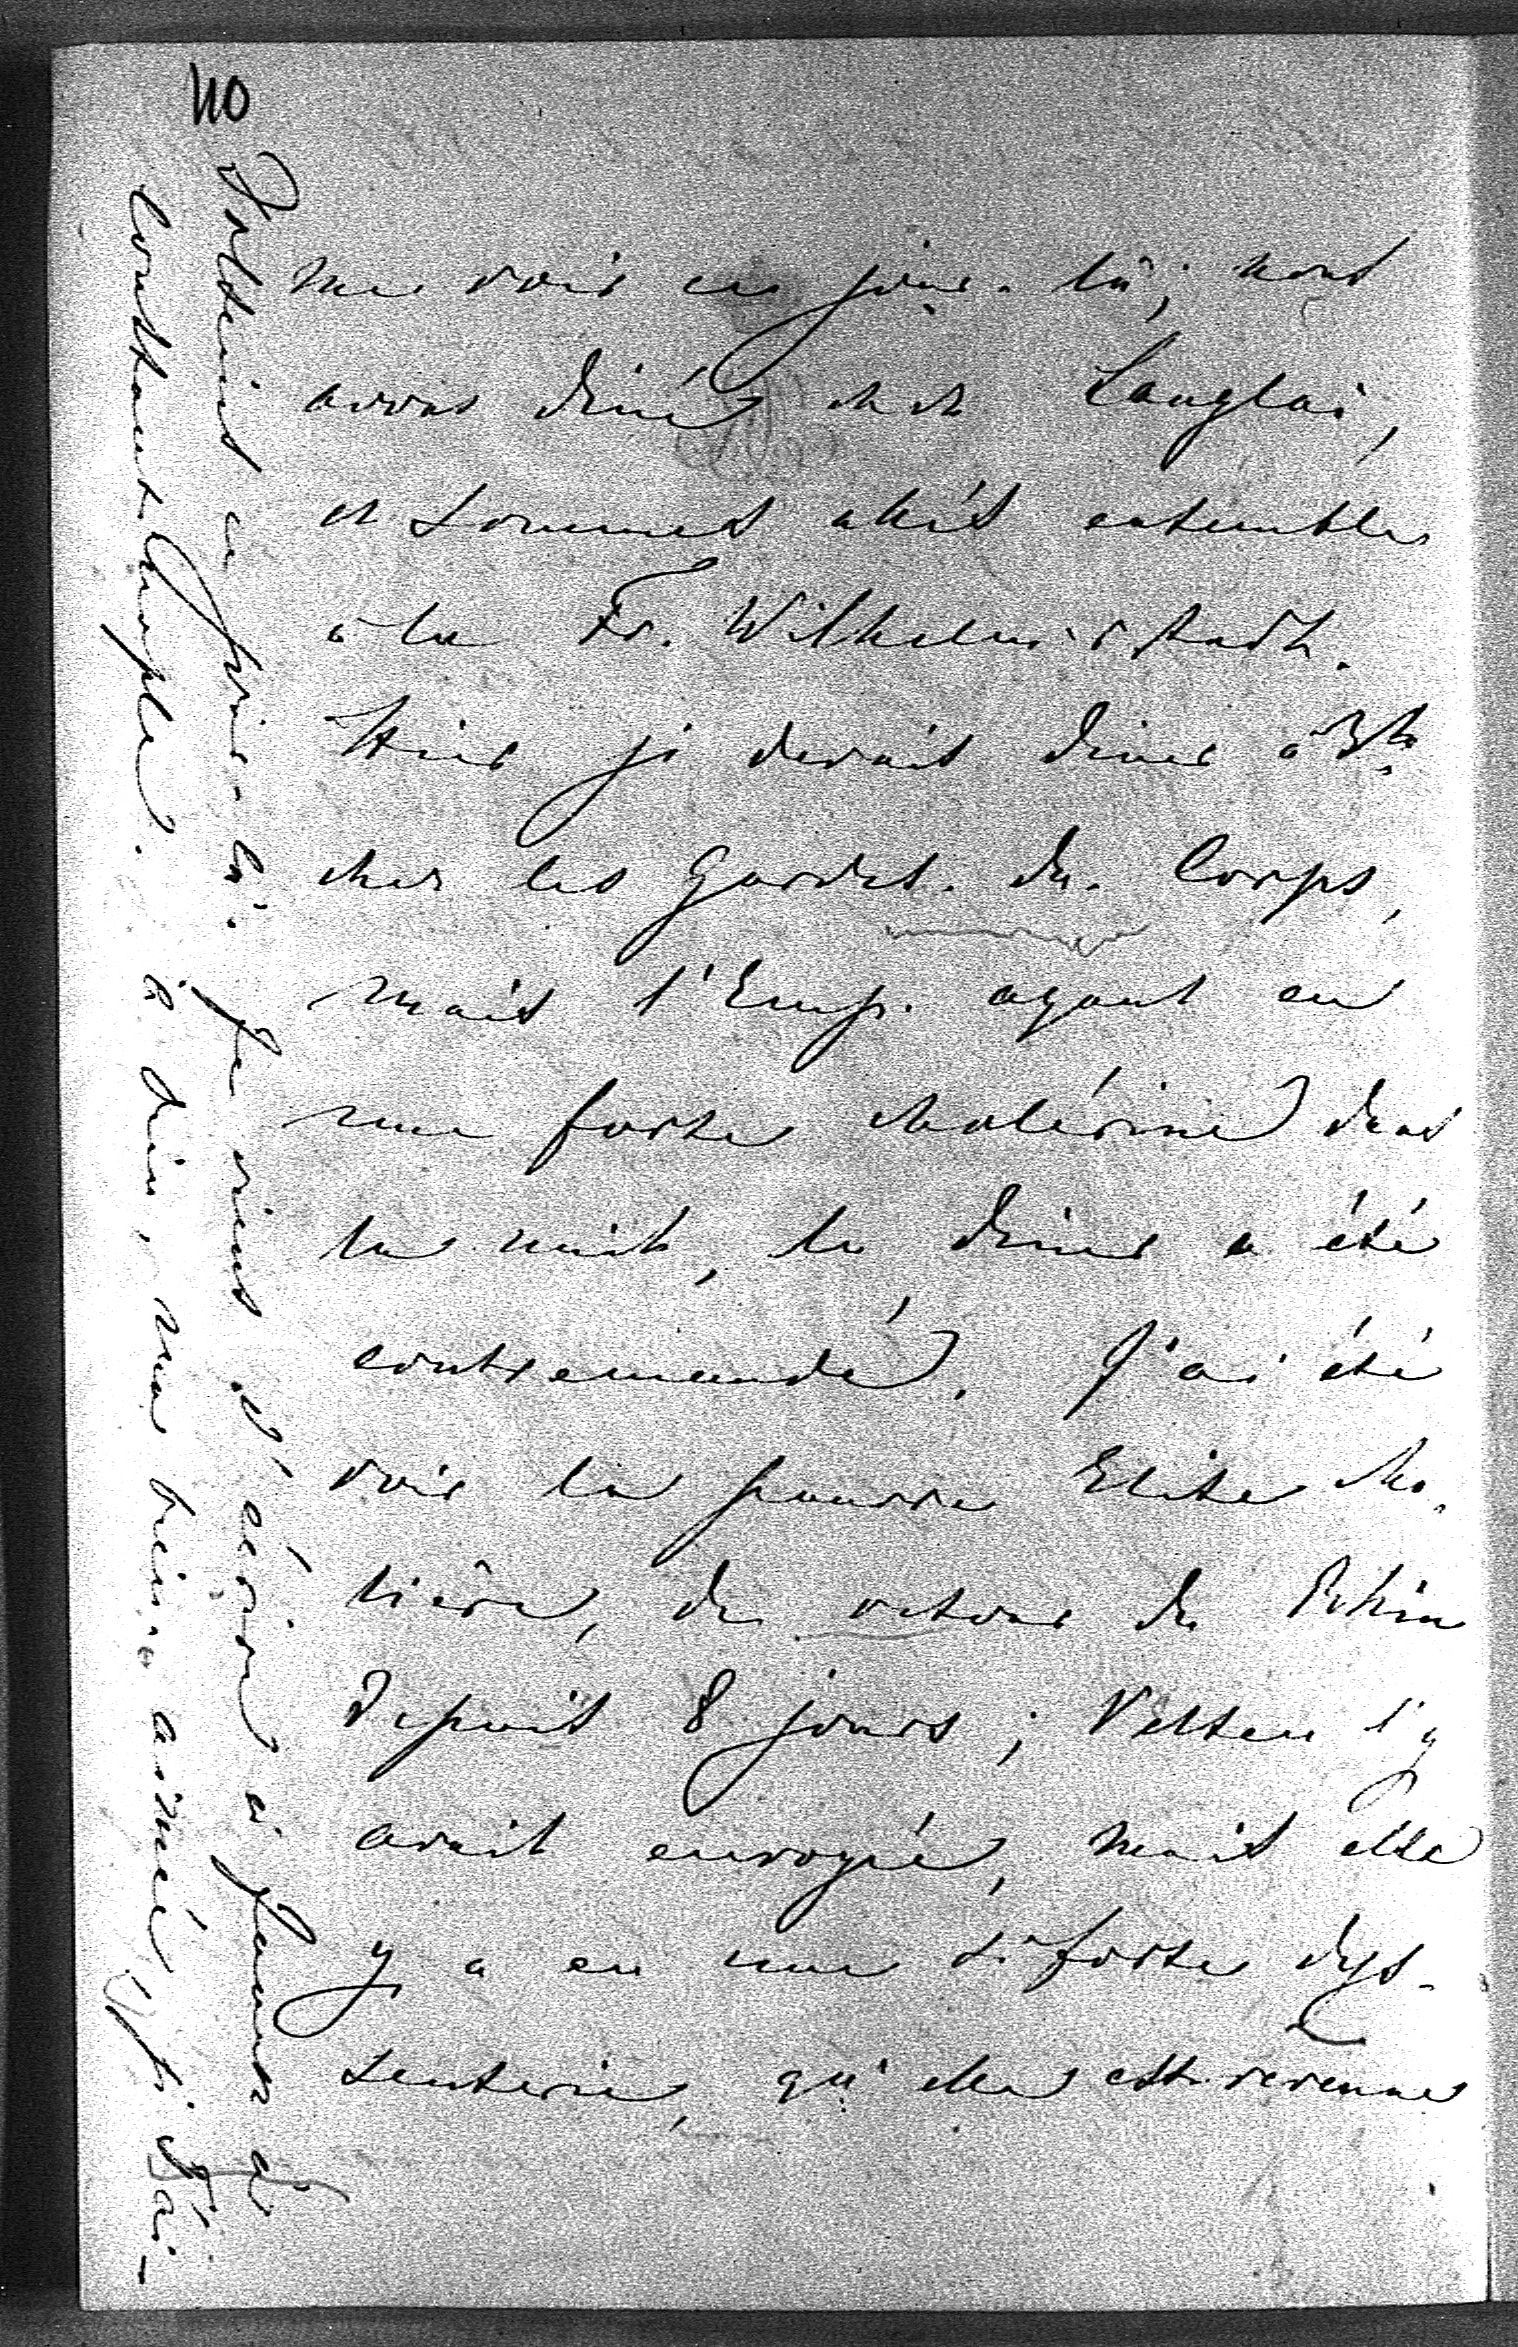 110
me voir ce jour-là; nous
avons diné chez Langlai,
et sommes allés ensemble
à la Fr. Wilhelmsstadt.
Hier je devais diner à 3h.
chez les Gardes. du. Corps,
mais l'Emp. ayant eu
une forte cholérine dans
la nuit, le diner a été
contremandé. J'ai été
voir la pauvre Elise
de retour du Rhin
depuis 8 jours; Velten l'y
avait envoyée, mais elle
y a eu une si forte dys-
senterie, qu'elle est revenue
Potsdam ce jour-là. Je viens d'écrire à Fanny à
Constantinople. à dieu, mon bien. aimé,